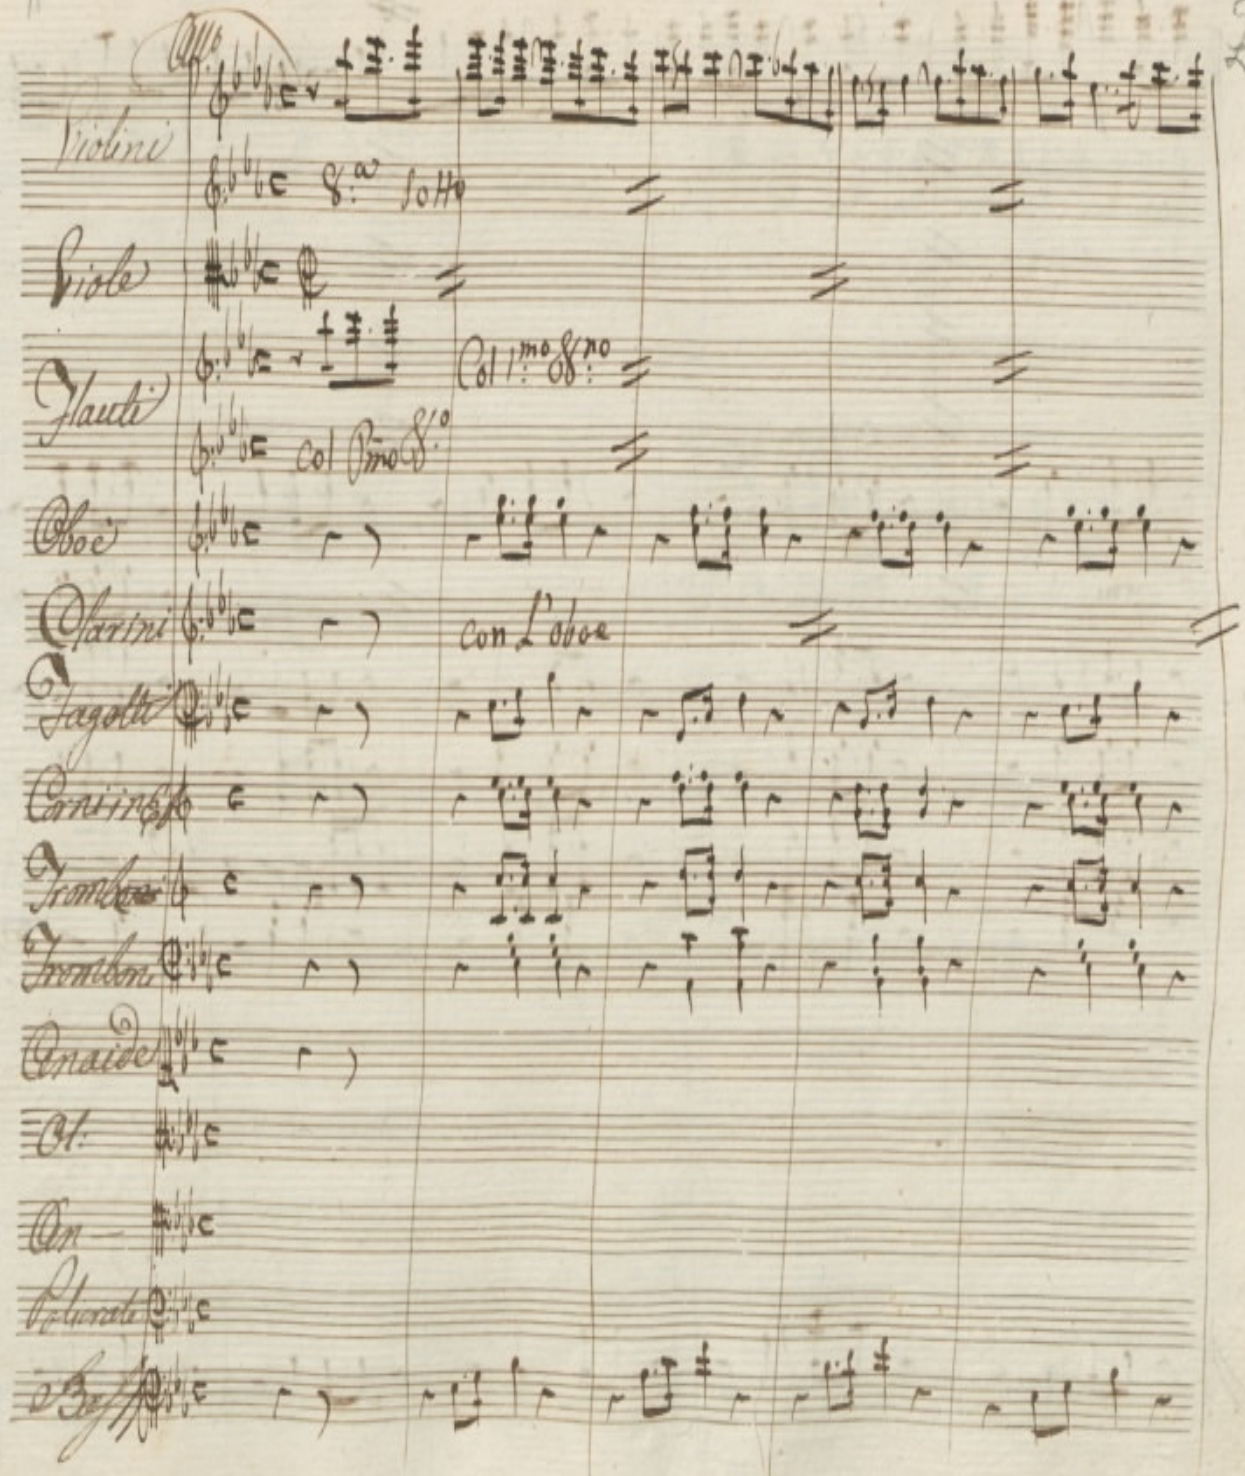 All.o
Violini
8:a sotto
Viole
Flauti
Col 1:mo 8:no
col Pmo 8:o
Oboè
Clarini
con L'oboe
Fagotti
Corni in
Trombe
Tromboni
Anaide
Ol:
An
Policrate
Bassi